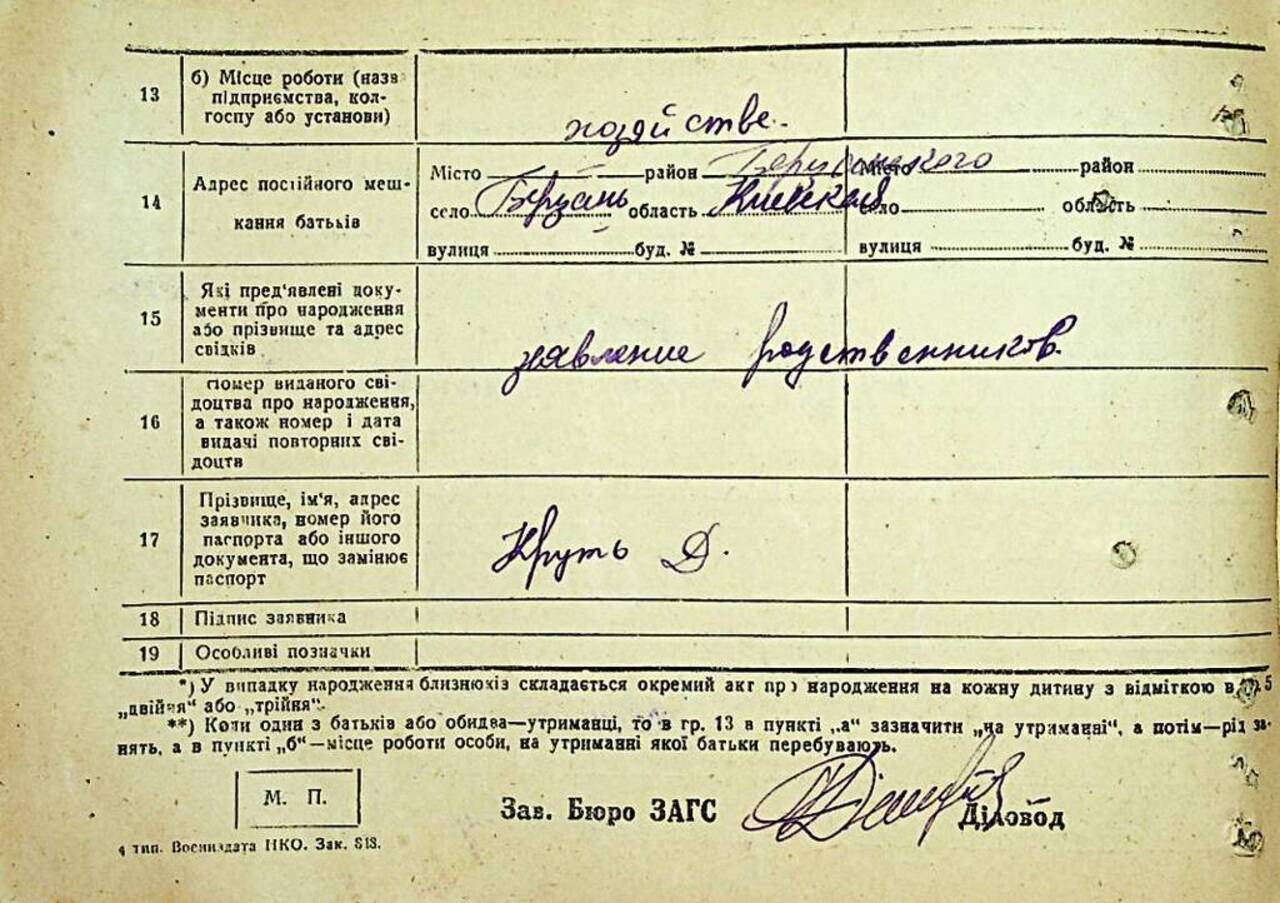 13 б) Місце роботи (назв
підприємства, кол-
госпу або установи)
хозяйстве.
14 Адрес постійного меш-
кання батьків
Місто район Березанского Місто район
село Березань область Киевская село область
вулиця буд. № вулиця буд. №
15 Які пред'явлені доку-
менти про народження
або прізвище та адрес
свідків
заявление родственников.
16 Номер виданого сві-
доцтва про народження,
а також номер і дата
видачі повторних сві-
доцтв
17 Прізвище, ім'я, адрес
заявника, номер його
паспорта або іншого
документа, що замінює
паспорт
Круть Д.
18 Підпис заявника
19 Особливі позначки
*) У випадку народження близнюків складається окремий акт про народження на кожну дитину з відміткою в 5
„двійня“ або „трійня“.
**) Коли один з батьків або обидва—утриманці, то в гр. 13 в пункті „а“ зазначити „на утриманні“, а потім—рід за-
нять, а в пункті „б“—місце роботи особи, на утриманні якої батьки перебувають.
М. П.
Зав. Бюро ЗАГС Діловод
4 тип. Воениздата НКО. Зак. 818.